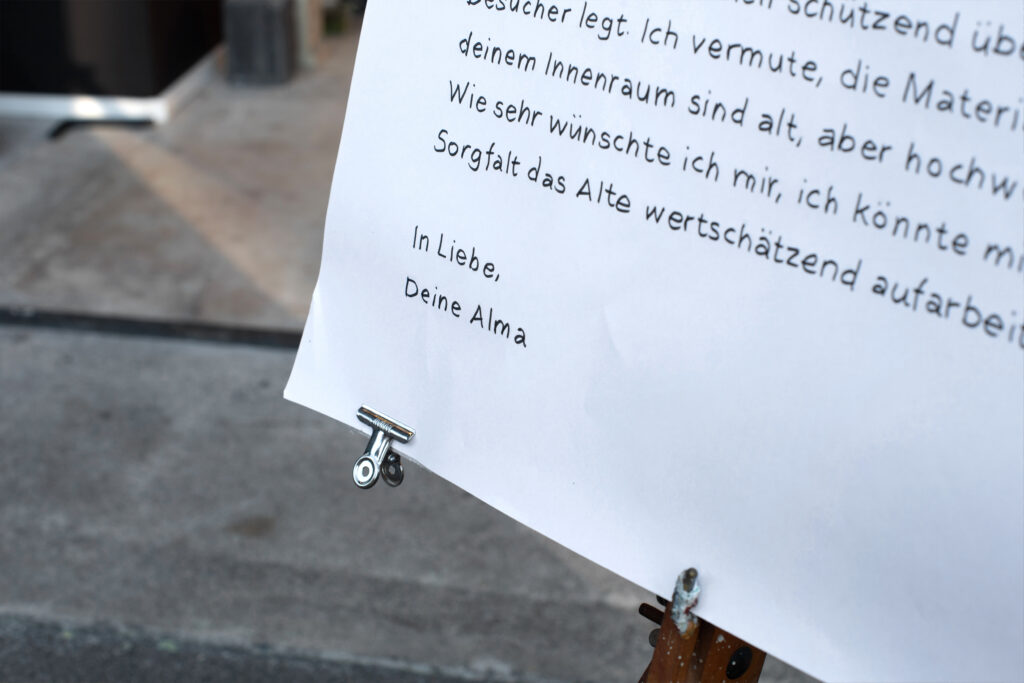 schützend
Besucher legt. Ich vermute, die
deinem Innenraum sind alt, aber
Wie sehr wünschte ich mir, ich könnte
Sorgfalt das Alte wertschätzend
In Liebe,
Deine Alma